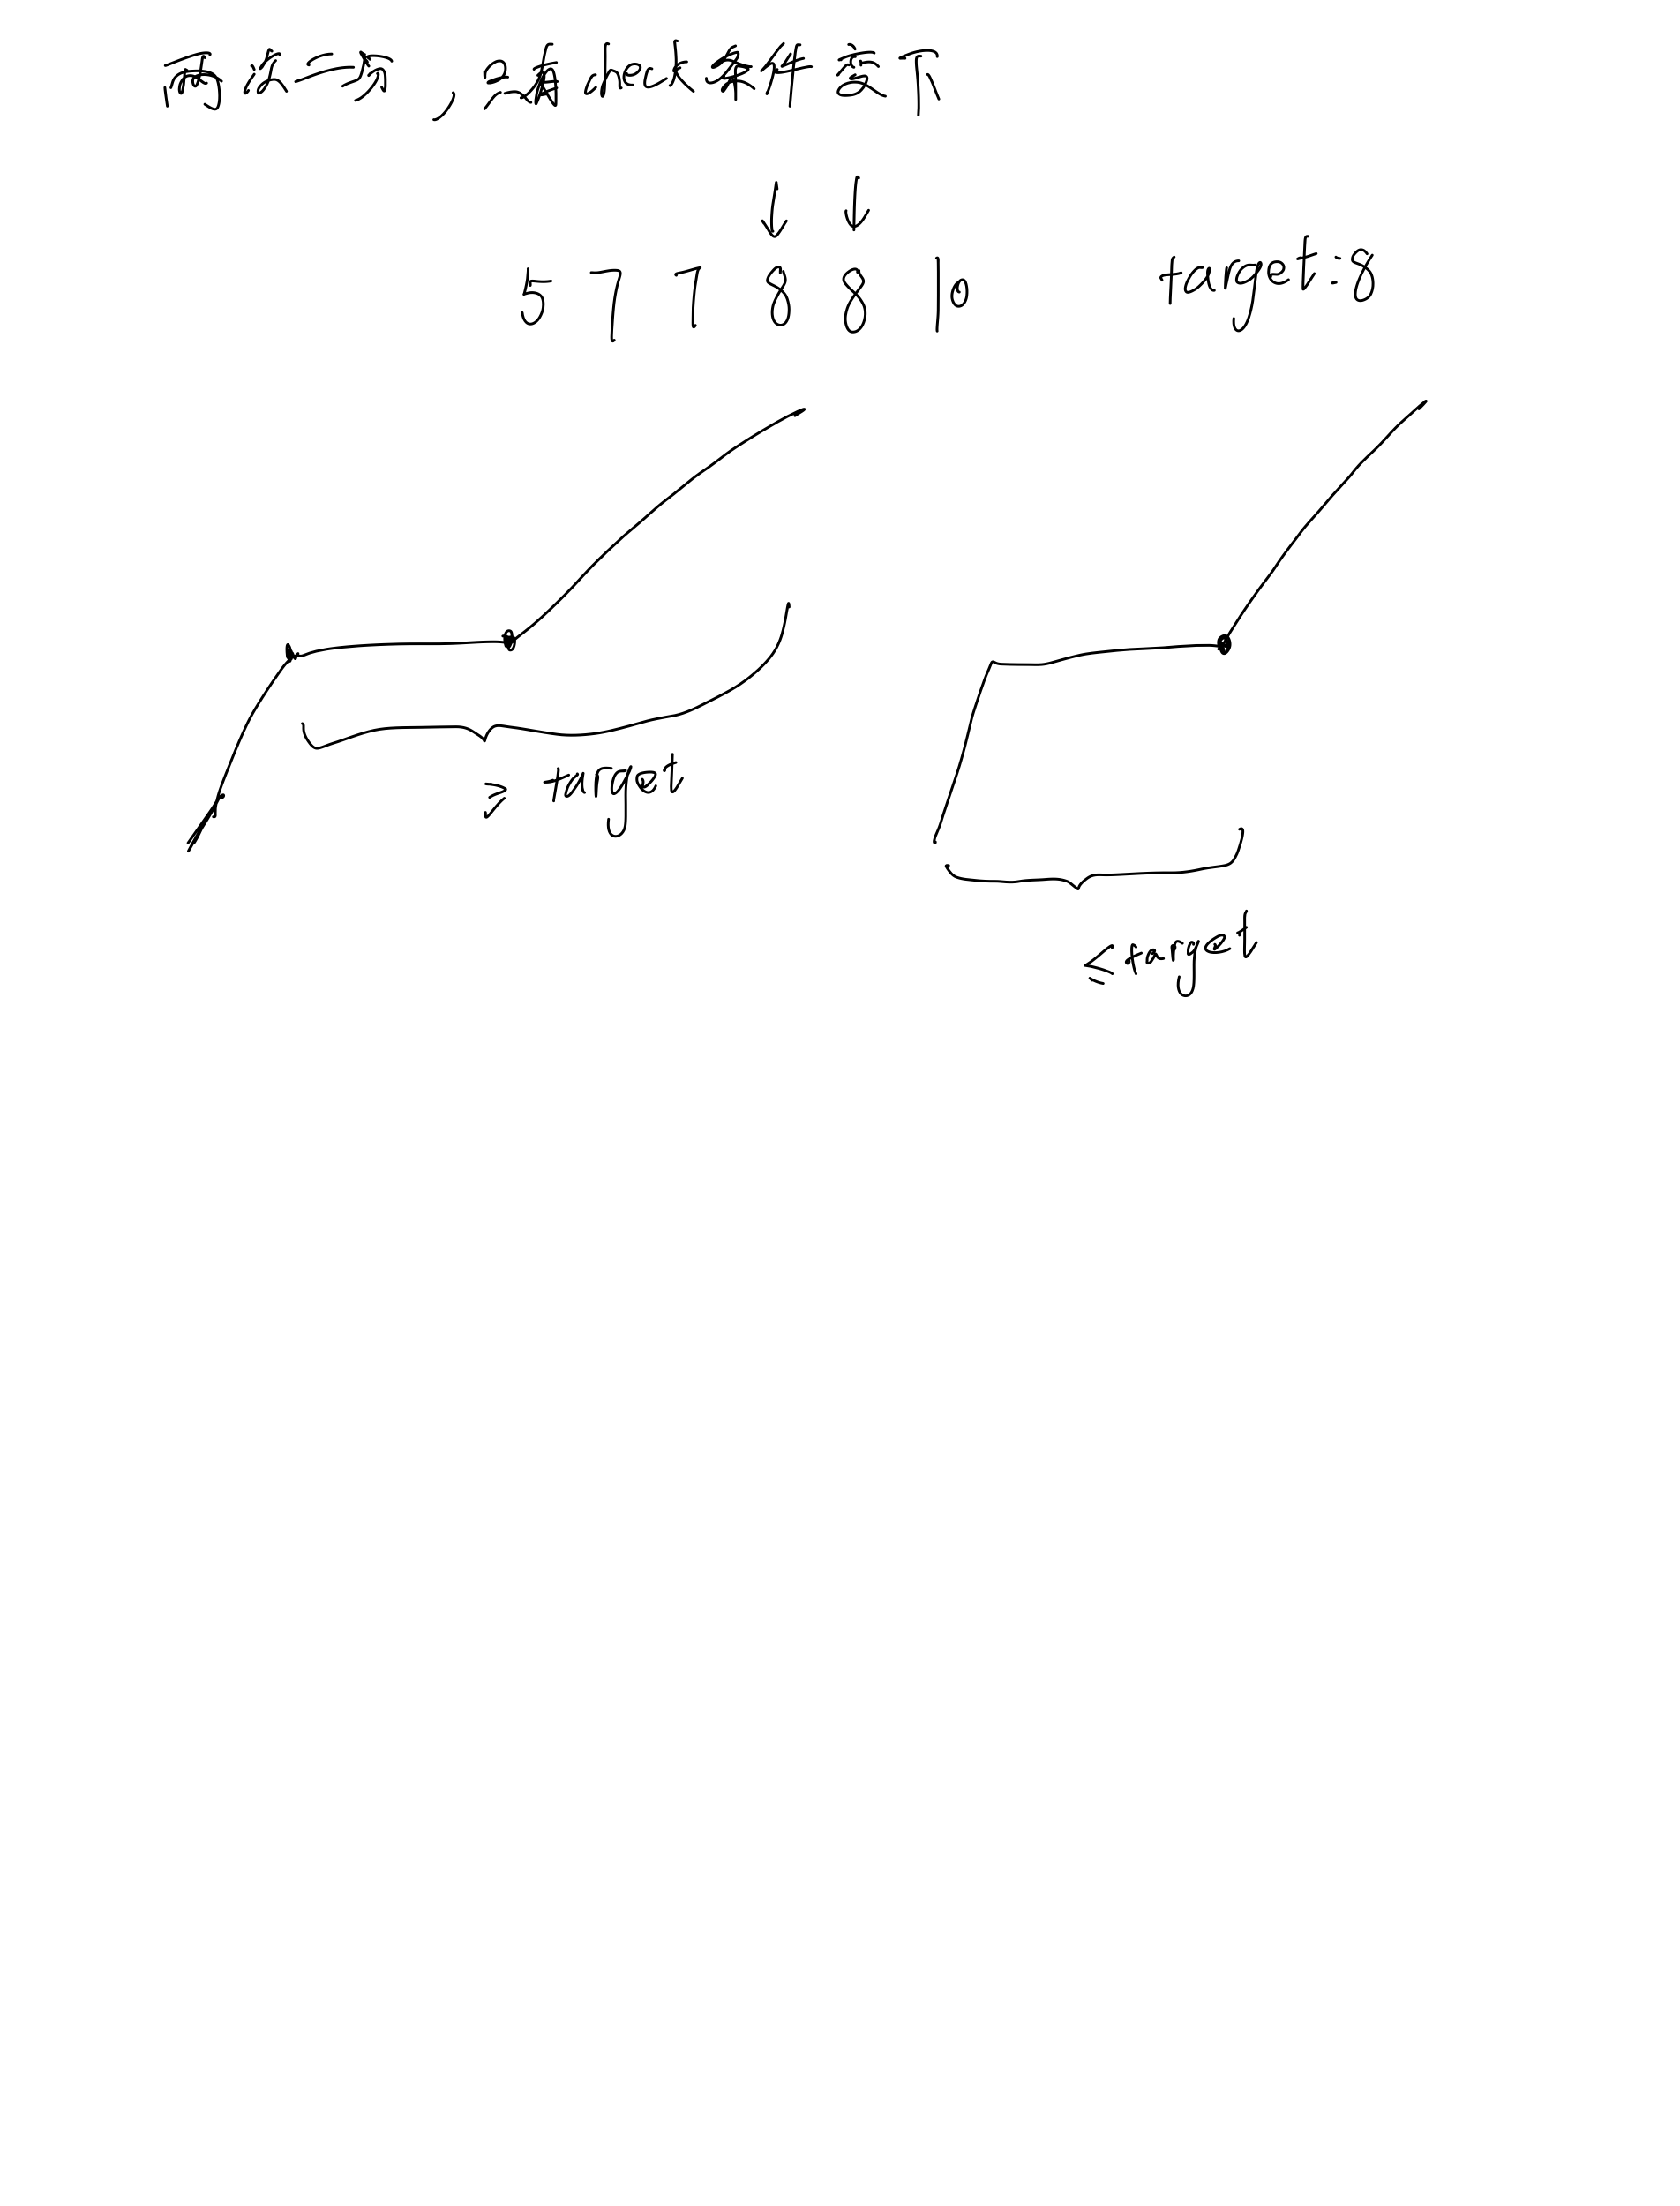 两次二分,只有check条件变下
5 7 7 8 8 10 target:8
≥ target
≤ target